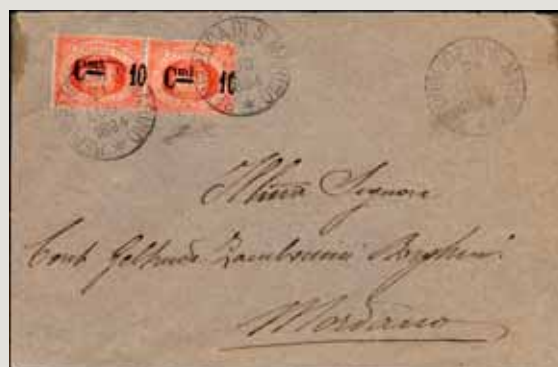 Cmi 10 Cmi 10
1894
Illma Signora
Cont Geltrude Zambonini Borghini
Mordano